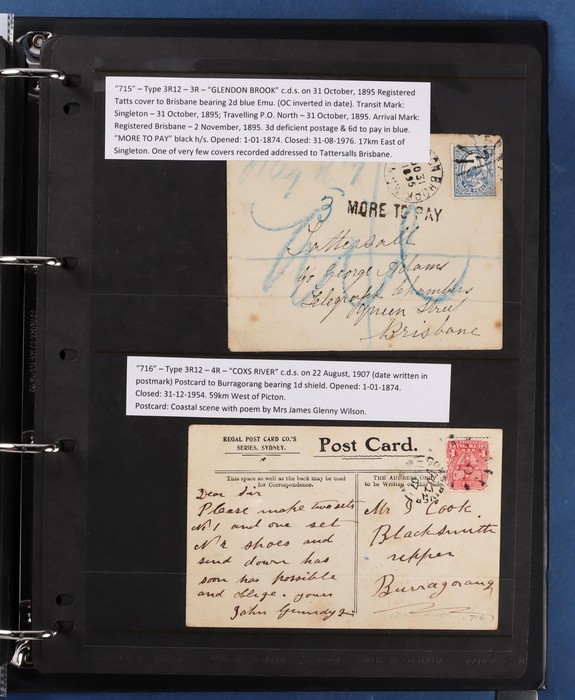 "715" – Type 3R12 – 3R – "GLENDON BROOK" c.d.s. on 31 October, 1895 Registered
Tatts cover to Brisbane bearing 2d blue Emu. (OC inverted in date). Transit Mark:
Singleton – 31 October, 1895; Travelling P.O. North – 31 October, 1895. Arrival Mark:
Registered Brisbane – 2 November, 1895. 3d deficient postage & 6d to pay in blue.
"MORE TO PAY" black h/s. Opened: 1-01-1874. Closed: 31-08-1976. 17km East of
Singleton. One of very few covers recorded addressed to Tattersalls Brisbane.
3
MORE TO PAY
Tattersall
c/o George Adams
Telegraph Chambers
Queen Street
Brisbane
"716" – Type 3R12 – 4R – "COXS RIVER" c.d.s. on 22 August, 1907 (date written in
postmark) Postcard to Burragorang bearing 1d shield. Opened: 1-01-1874.
Closed: 31-12-1954. 59km West of Picton.
Postcard: Coastal scene with poem by Mrs James Glenny Wilson.
REGAL POST CARD CO.'S
SERIES, SYDNEY.
Post Card.
This space as well as the back may be used
for Correspondence.
THE ADDRESS
to be Written
Dear Sir
Please make two sets
No 1 and one set
No 2 shoes and
send down has
soon has possible
and oblige. yours
John Grundy
Mr J Cook.
Blacksmith
Burragorang
716